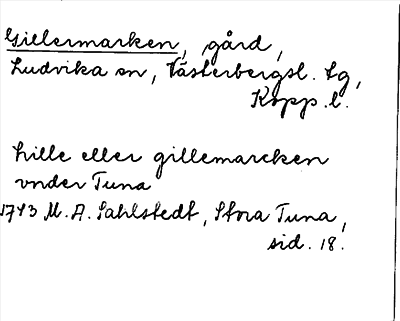 Gillermarken, gård,
Ludvika sn, Västerbergsl. tg,
Kopp. l.
hille eller gillemarcken
vnder Tuna
1743 M. A. Sahlstedt, Stora Tuna,
sid. 18.